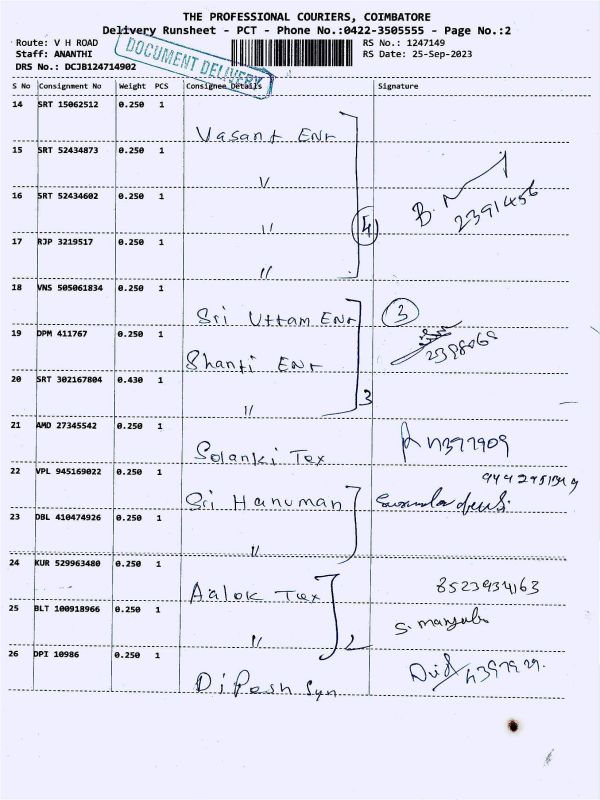 THE PROFESSIONAL COURIERS, COIMBATORE
Delivery Runsheet - PCT - Phone No.:0422-3505555 - Page No.:2
Route: V H ROAD RS No.: 1247149
Staff: ANANTHI RS Date: 25-Sep-2023
DRS No.: DCJB124714902
DOCUMENT DELIVERY
S No Consignment No Weight PCS Consignee Details Signature
14 SRT 15062512 0.250 1 Vasant Ent
15 SRT 52434873 0.250 1 V
16 SRT 52434602 0.250 1 11 4 B. 2391456
17 RJP 3219517 0.250 1 11
18 VNS 505061834 0.250 1 Sri Uttam Ent 3
19 DPM 411767 0.250 1 Shanti Ent
20 SRT 302167804 0.430 1 11 3
21 AMD 27345542 0.250 1 Solanki Tex
22 VPL 945169022 0.250 1 Sri Hanuman
23 DBL 410474926 0.250 1 11
24 KUR 529963480 0.250 1 Aalok Tex 8523934163
25 BLT 100918966 0.250 1 11 2 S. manjula
26 DPI 10986 0.250 1 Dipesh Syn